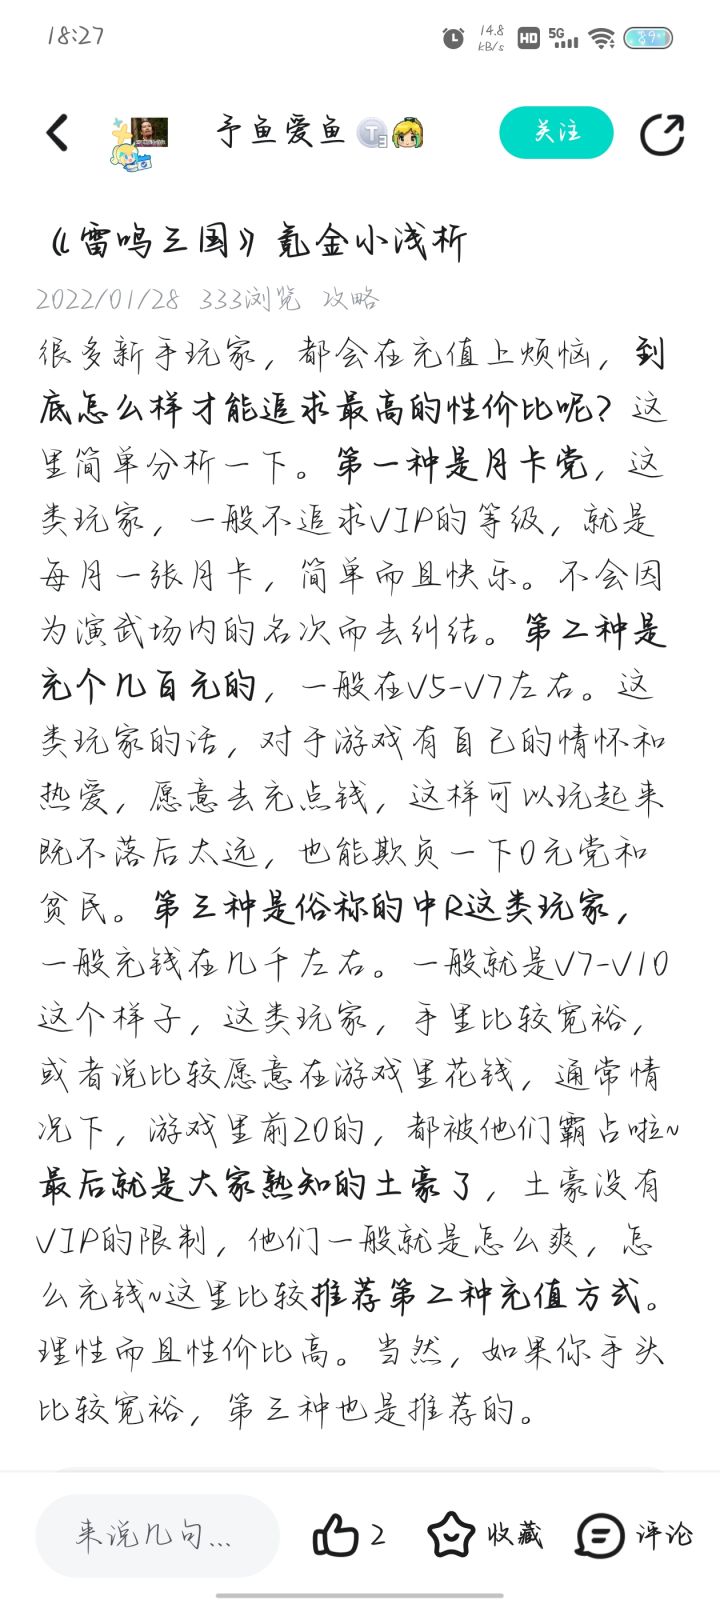 18:27
14.8
KB/s
HD
5G
89
予鱼爱鱼
T3
关注
《雷鸣三国》氪金小浅析
2022/01/28 333浏览 攻略
很多新手玩家，都会在充值上烦恼，到
底怎么样才能追求最高的性价比呢？这
里简单分析一下。第一种是月卡党，这
类玩家，一般不追求VIP的等级，就是
每月一张月卡，简单而且快乐。不会因
为演武场内的名次而去纠结。第二种是
充个几百元的，一般在V5-V7左右。这
类玩家的话，对于游戏有自己的情怀和
热爱，愿意去充点钱，这样可以玩起来
既不落后太远，也能欺负一下0元党和
贫民。第三种是俗称的中R这类玩家，
一般充钱在几千左右。一般就是V7-V10
这个样子，这类玩家，手里比较宽裕，
或者说比较愿意在游戏里花钱，通常情
况下，游戏里前20的，都被他们霸占啦~
最后就是大家熟知的土豪了，土豪没有
VIP的限制，他们一般就是怎么爽，怎
么充钱~这里比较推荐第二种充值方式。
理性而且性价比高。当然，如果你手头
比较宽裕，第三种也是推荐的。
来说几句...
2
收藏
评论